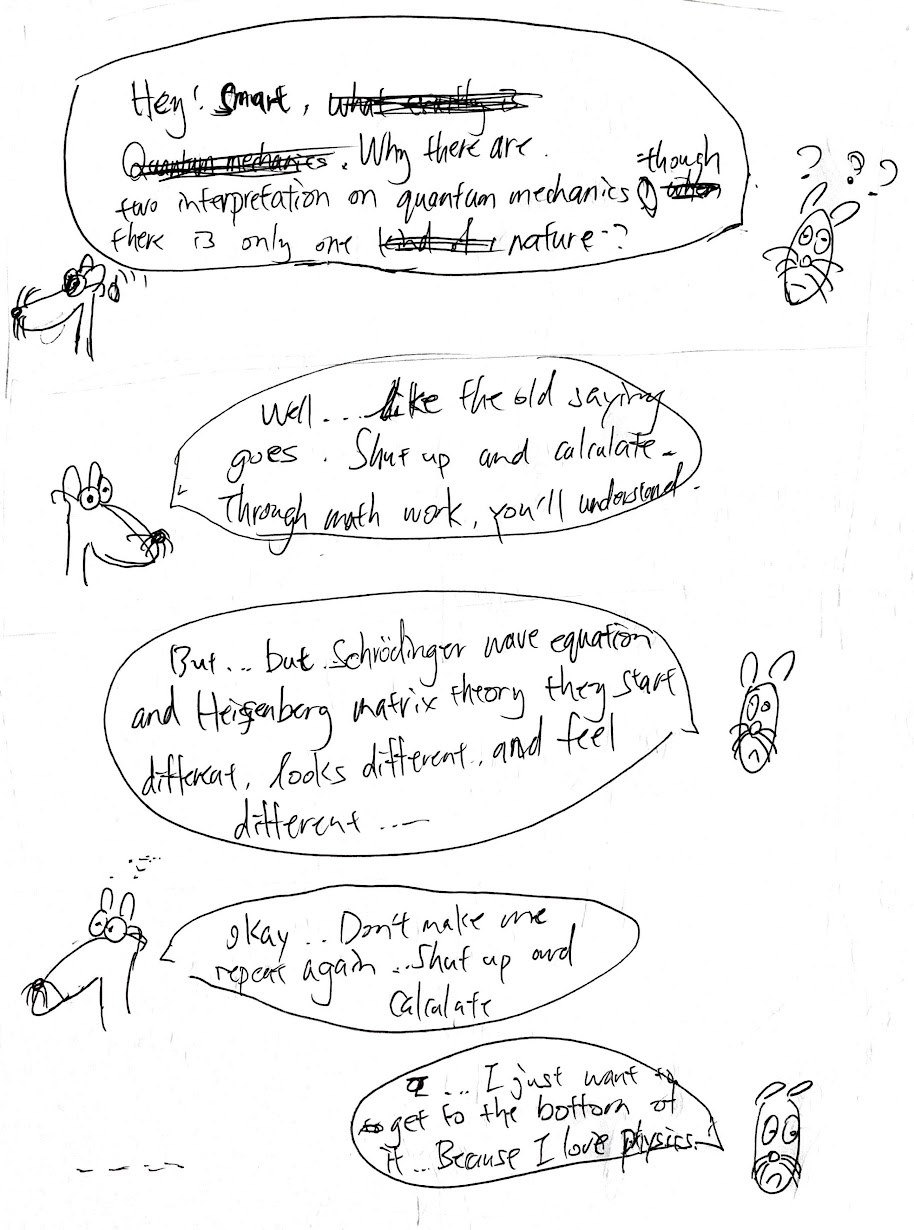 Hey! Smart, what exactly is
Quantum mechanics. Why there are
two interpretation on quantum mechanics though when
there is only one kind of nature?
? ? ?
Well... like the old saying
goes. Shut up and calculate.
Through math work, you'll understand.
But... but Schrödinger wave equation
and Heisenberg matrix theory they start
different, looks different, and feel
different ...
Okay.. Don't make me
repeat again... Shut up and
Calculate
I ... I just want to
to get to the bottom of
it... Because I love physics!